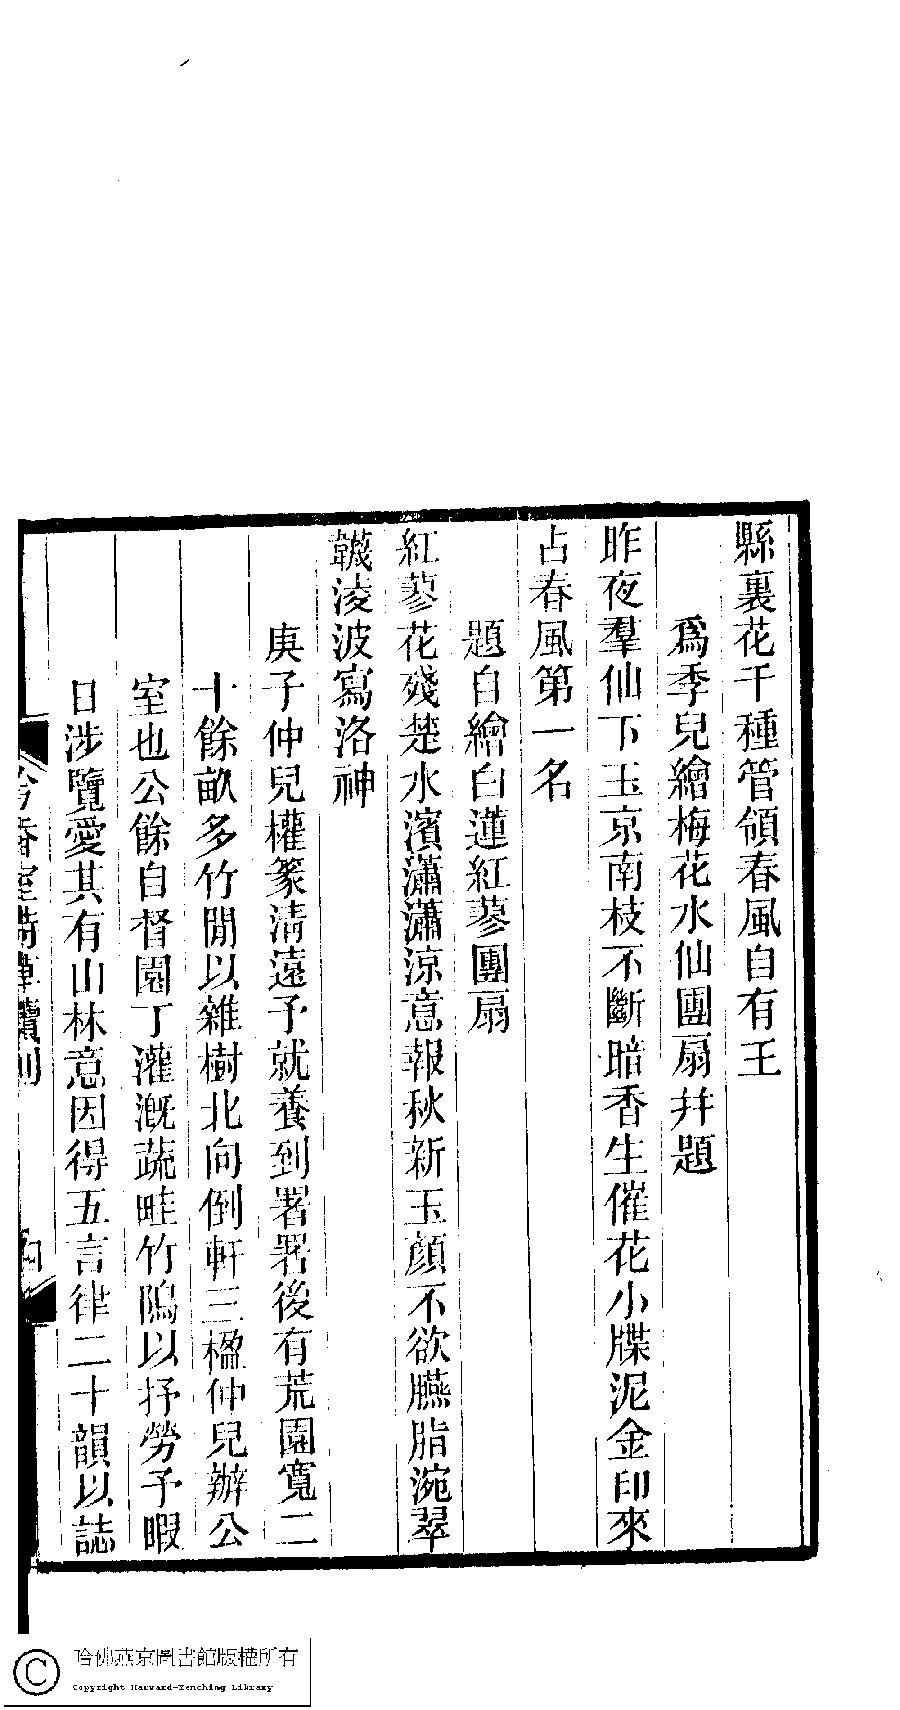 縣裏花千種管領春風自有王
爲季兒繪梅花水仙團扇幷題
昨夜羣仙下玉京南枝不斷暗香生催花小牒泥金印來
占春風第一名
題自繪白蓮紅蓼團扇
紅蓼花殘楚水濱瀟瀟涼意報秋新玉顏不欲臙脂涴翠
韈淩波寫洛神
庚子仲兒權篆淸遠予就養到署署後有荒園寬二
十餘畝多竹閒以雜樹北向倒軒三楹仲兒辦公
室也公餘自督園丁灌漑蔬畦竹隖以抒勞予暇
日涉覽愛其有山林意因得五言律二十韻以誌
吟香室詩草續刻
哈佛燕京圖書館版權所有
Copyright Harvard-Yenching Library